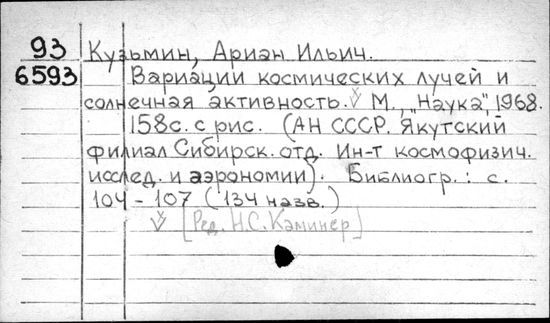 93 Кузьмин, Ариан Ильич.
6593 Вариации космических лучей и
солнечная активность. М., "Наука", 1968.
158с. с рис. (АН СССР. Якутский
филиал Сибирск. отд. Ин-т космофизич.
исслед. и аэрономии). Библиогр.: с.
104-107 (134 назв.)
[Ред. Н.С. Каминер]